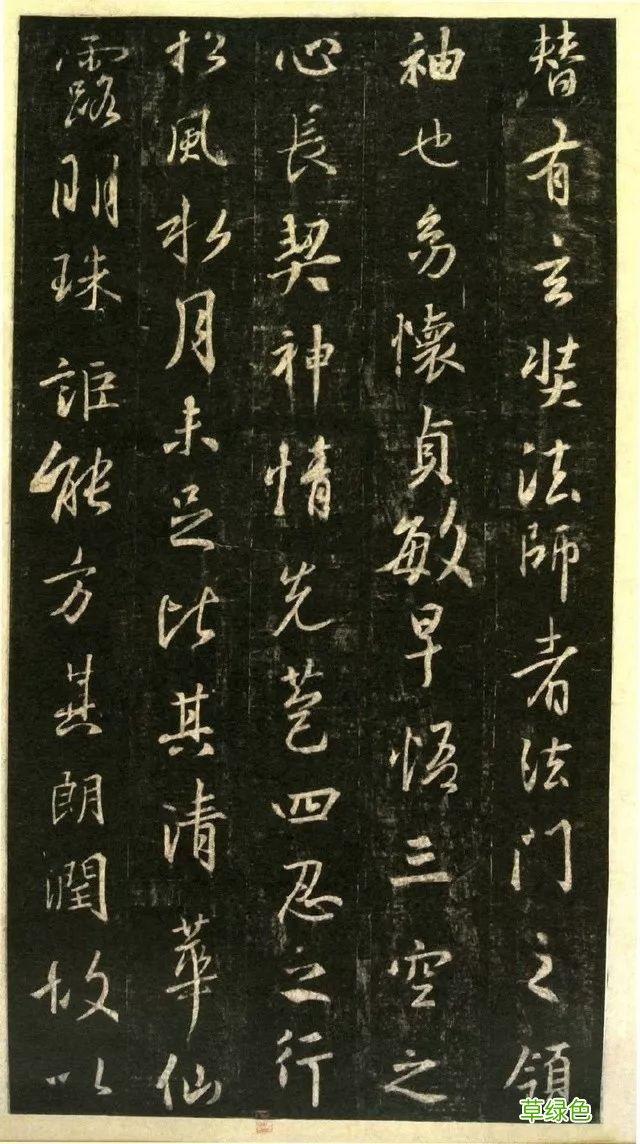 替有玄奘法師者法門之領
袖也㓜懷貞敏早悟三空之
心長契神情先苞四忍之行
松風水月未足比其清華仙
露明珠詎能方其朗潤故以
草绿色